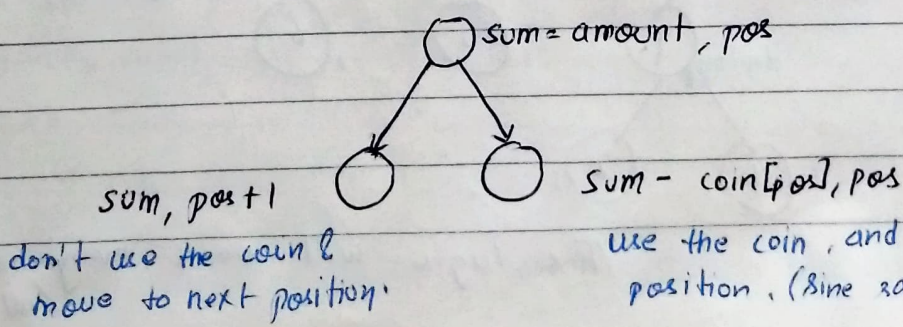 sum = amount, pos
sum, pos+1
sum - coin[pos], pos
don't use the coin &
move to next position.
use the coin, and
position. (Sine